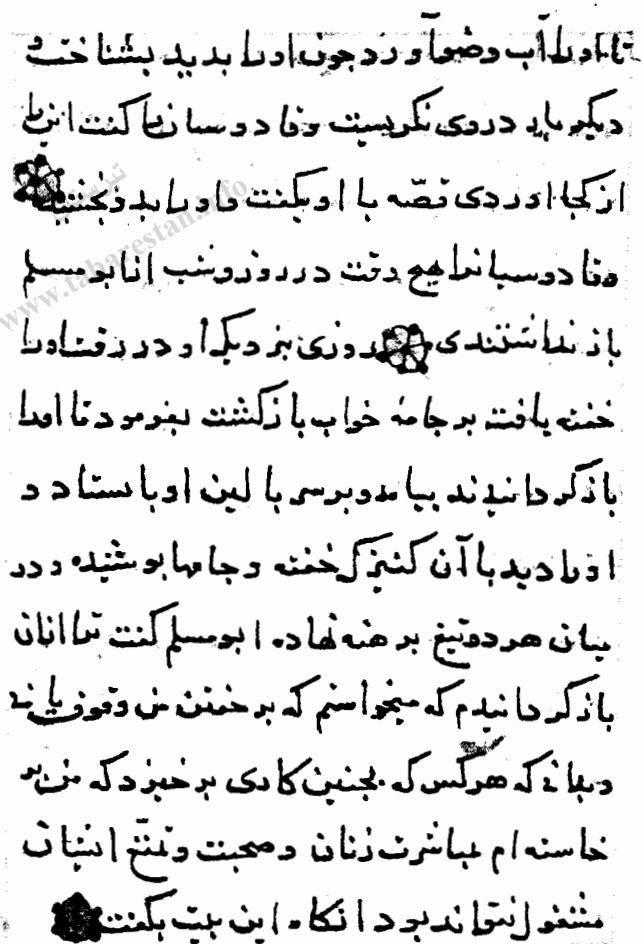 تا او را آب وضو آورد چون او را بدید بشناخت و
دیگر بار در روی نگریست ونداد وسبان را کفت این را
از کجا اوردی قصّه با او بکفت و او را بدو بخشید
ونداد وسبان را هیچ وقت در روز و شب از ابو مسلم
باز نداشتندی روزی بنزدیک او در رفت او را
خفته یافت بر جامهٔ خواب باز کشت بفرمود تا او را
باز کردانیدند بیامد و بر سر بالین او بایستاد و
او را دید با آن کنیزک خفته و جامها پوشیده و در
میان هر دو تیغ برهنه نهاده ابو مسلم کفت ترا از آن
باز کردانیدم که میخواستم که بر خفتن من وقوف یابی
و بدانی که هر کس که بچنین کاری بر خیزد که من بر
خاسته ام بمباشرت زنان و صحبت و تمتّع ایشان
مشغول نتواند بود انکاه این بیت بکفت
www.tabarestan.info